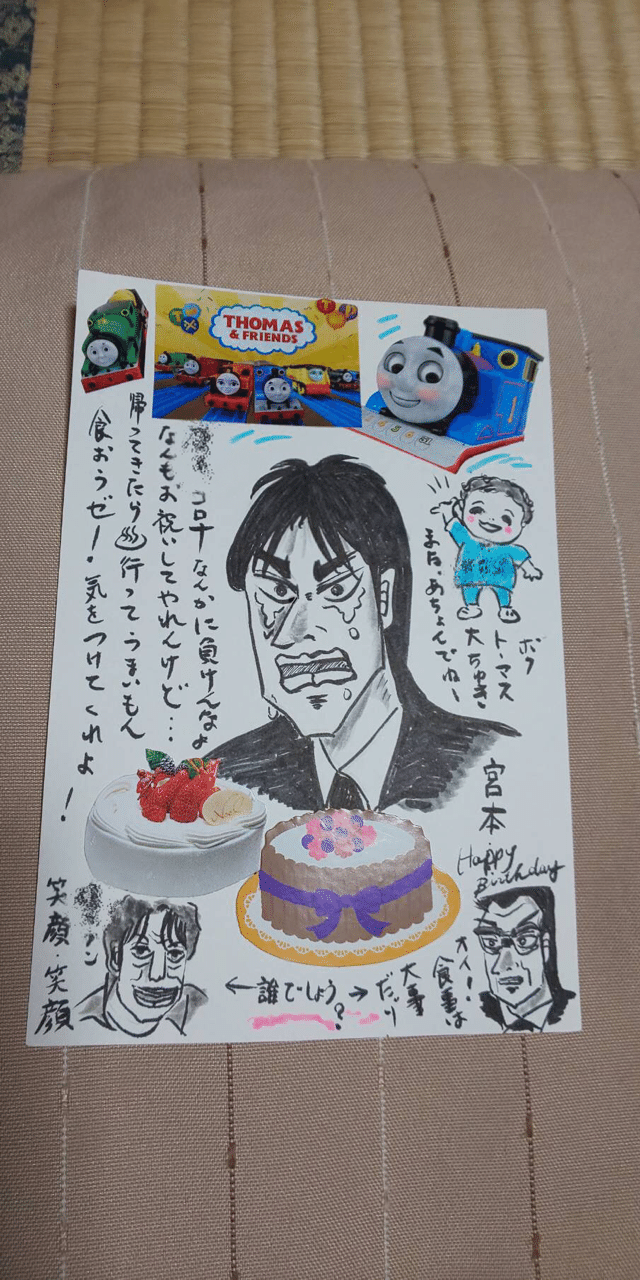 THOMAS
& FRIENDS
コロナなんかに負けんなよ
なんもお祝いしてやれんけど…
帰ってきたら♨行ってうまいもん
食おうゼ!気をつけてくれよ!
ボク
トーマス
大ちゅき
また、あちょんでねー
宮本
Happy
Birthday
オイ!!
食事は
大事
だッ
← 誰でしょう? →
笑顔・笑顔